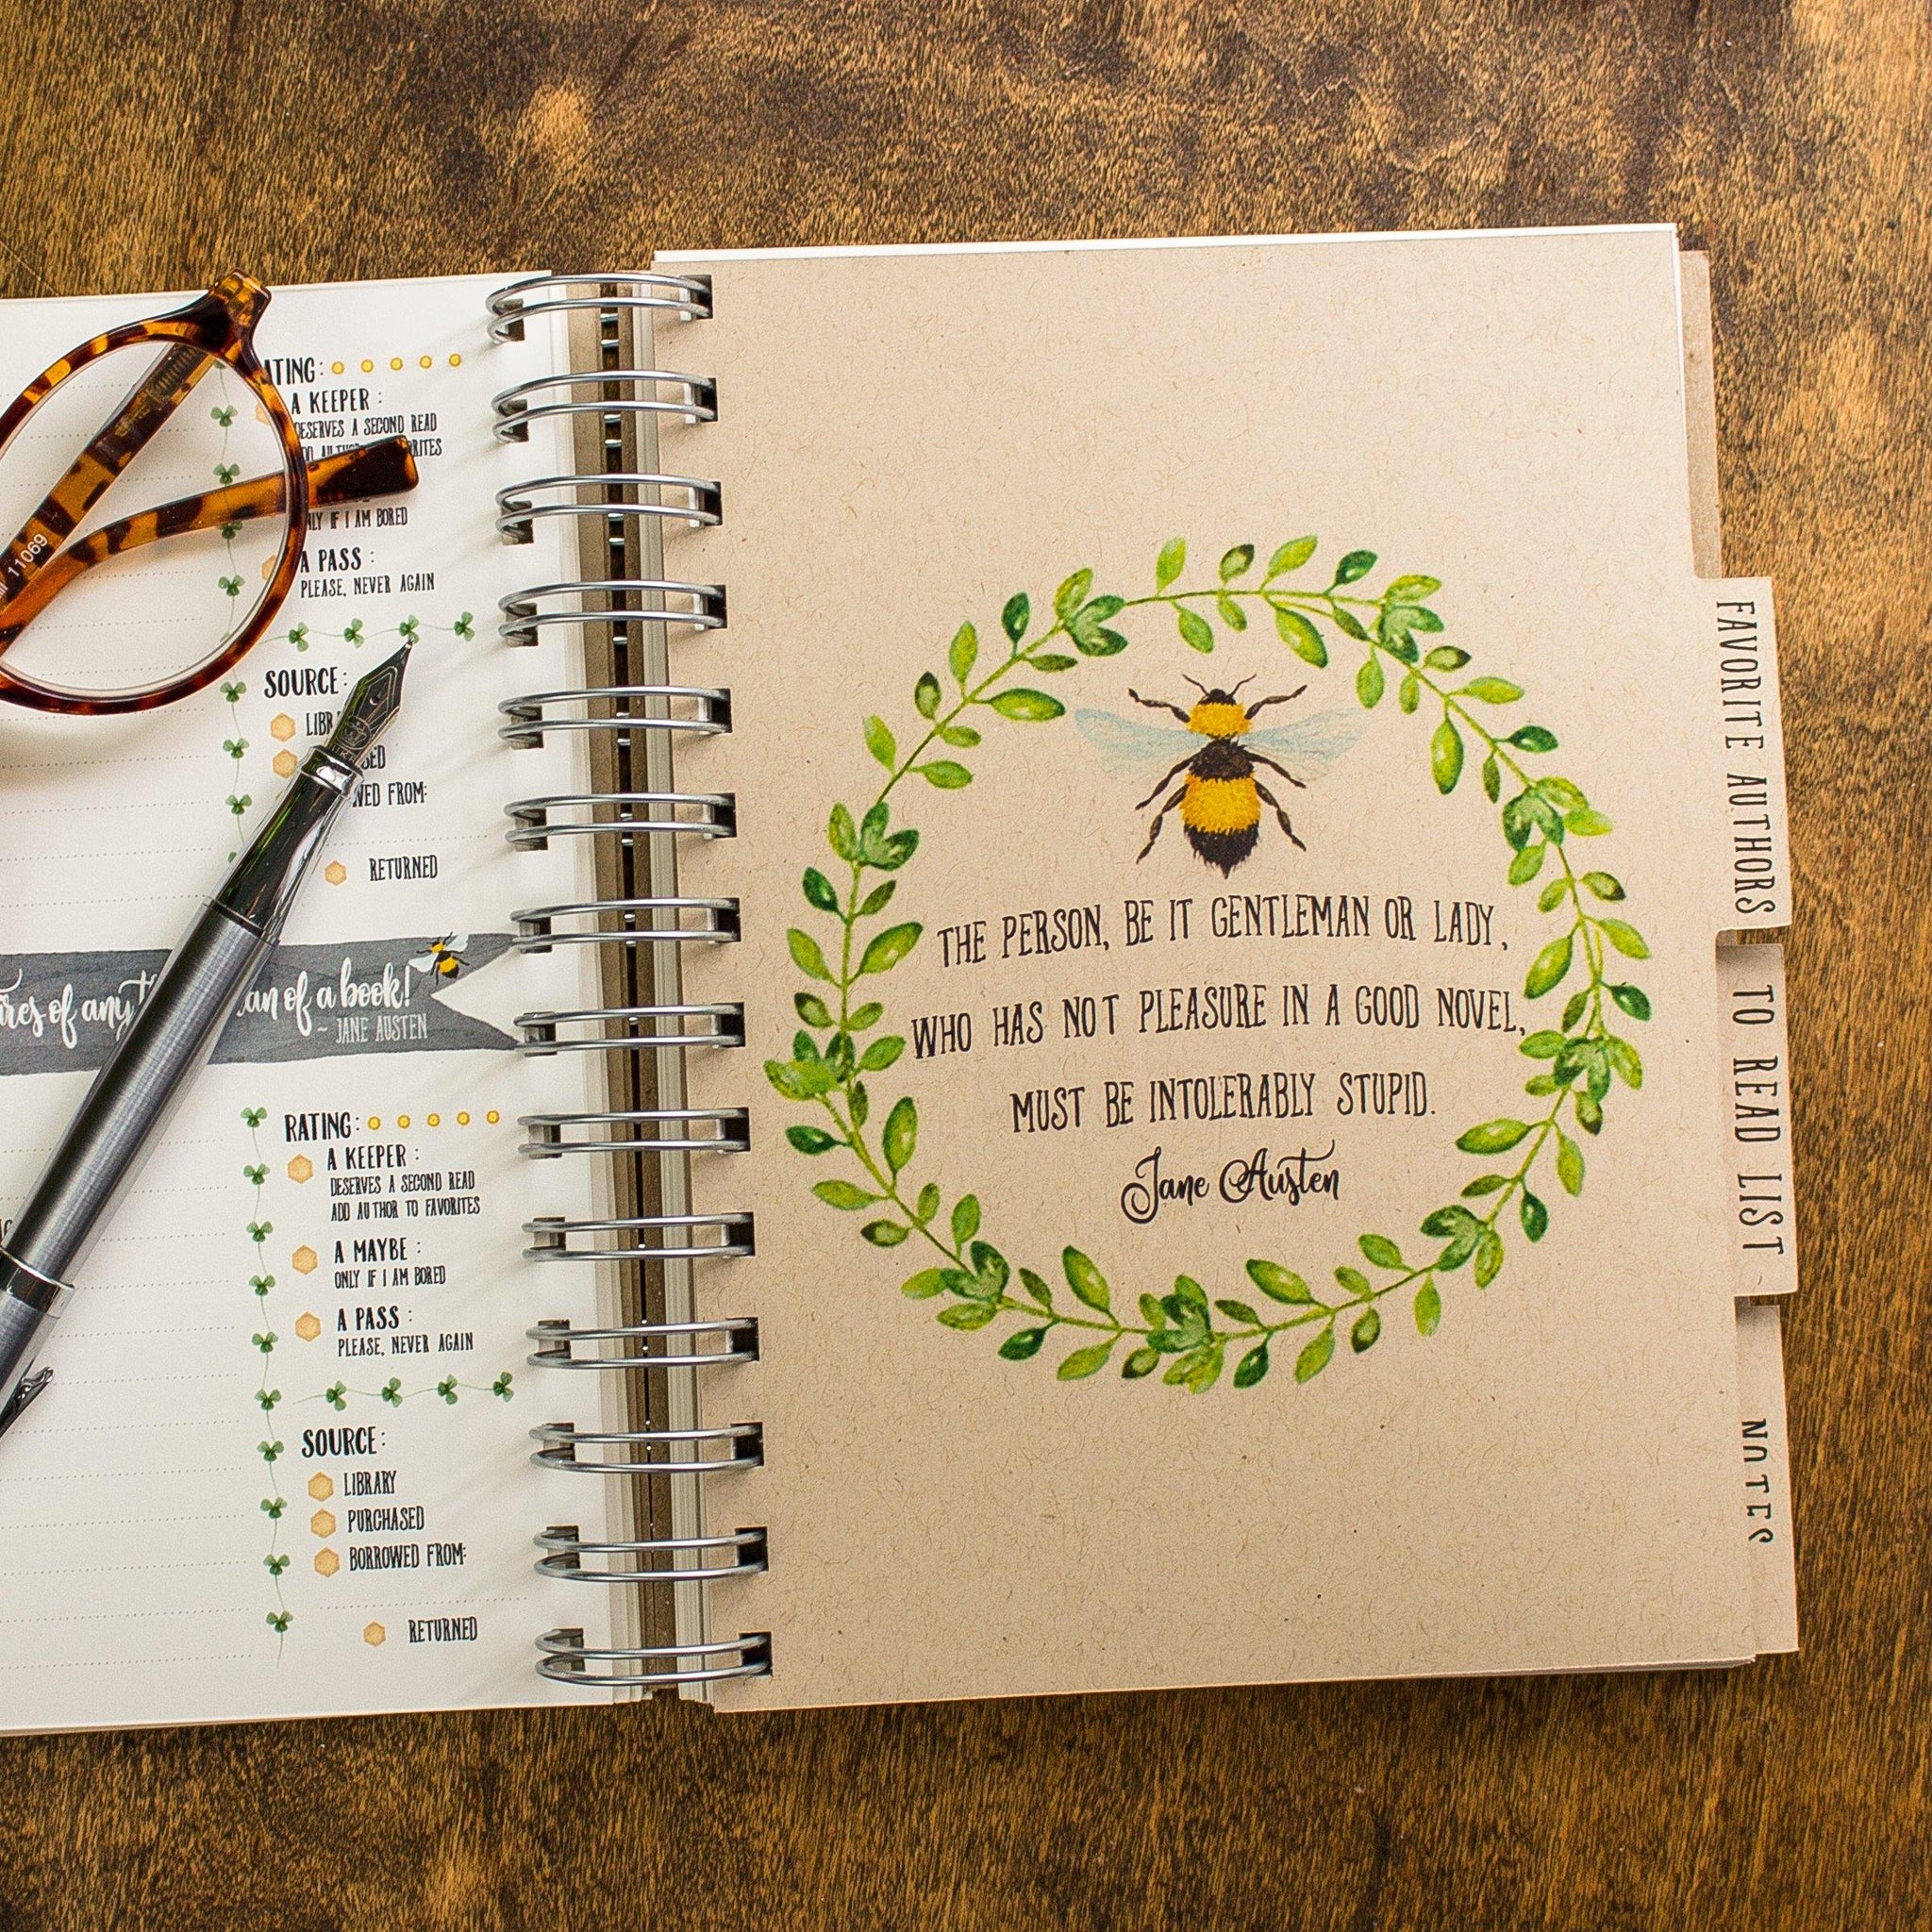 A KEEPER :
A SECOND READ
IF I AM BORED
A PASS :
PLEASE, NEVER AGAIN
SOURCE:
FROM:
RETURNED
of any
of a book!
~ JANE AUSTEN
RATING:
A KEEPER :
DESERVES A SECOND READ
ADD AUTHOR TO FAVORITES
A MAYBE :
ONLY IF I AM BORED
A PASS :
PLEASE, NEVER AGAIN
SOURCE:
LIBRARY
PURCHASED
BORROWED FROM:
RETURNED
11069
THE PERSON, BE IT GENTLEMAN OR LADY,
WHO HAS NOT PLEASURE IN A GOOD NOVEL,
MUST BE INTOLERABLY STUPID.
Jane Austen
FAVORITE AUTHORS
TO READ LIST
NOTES